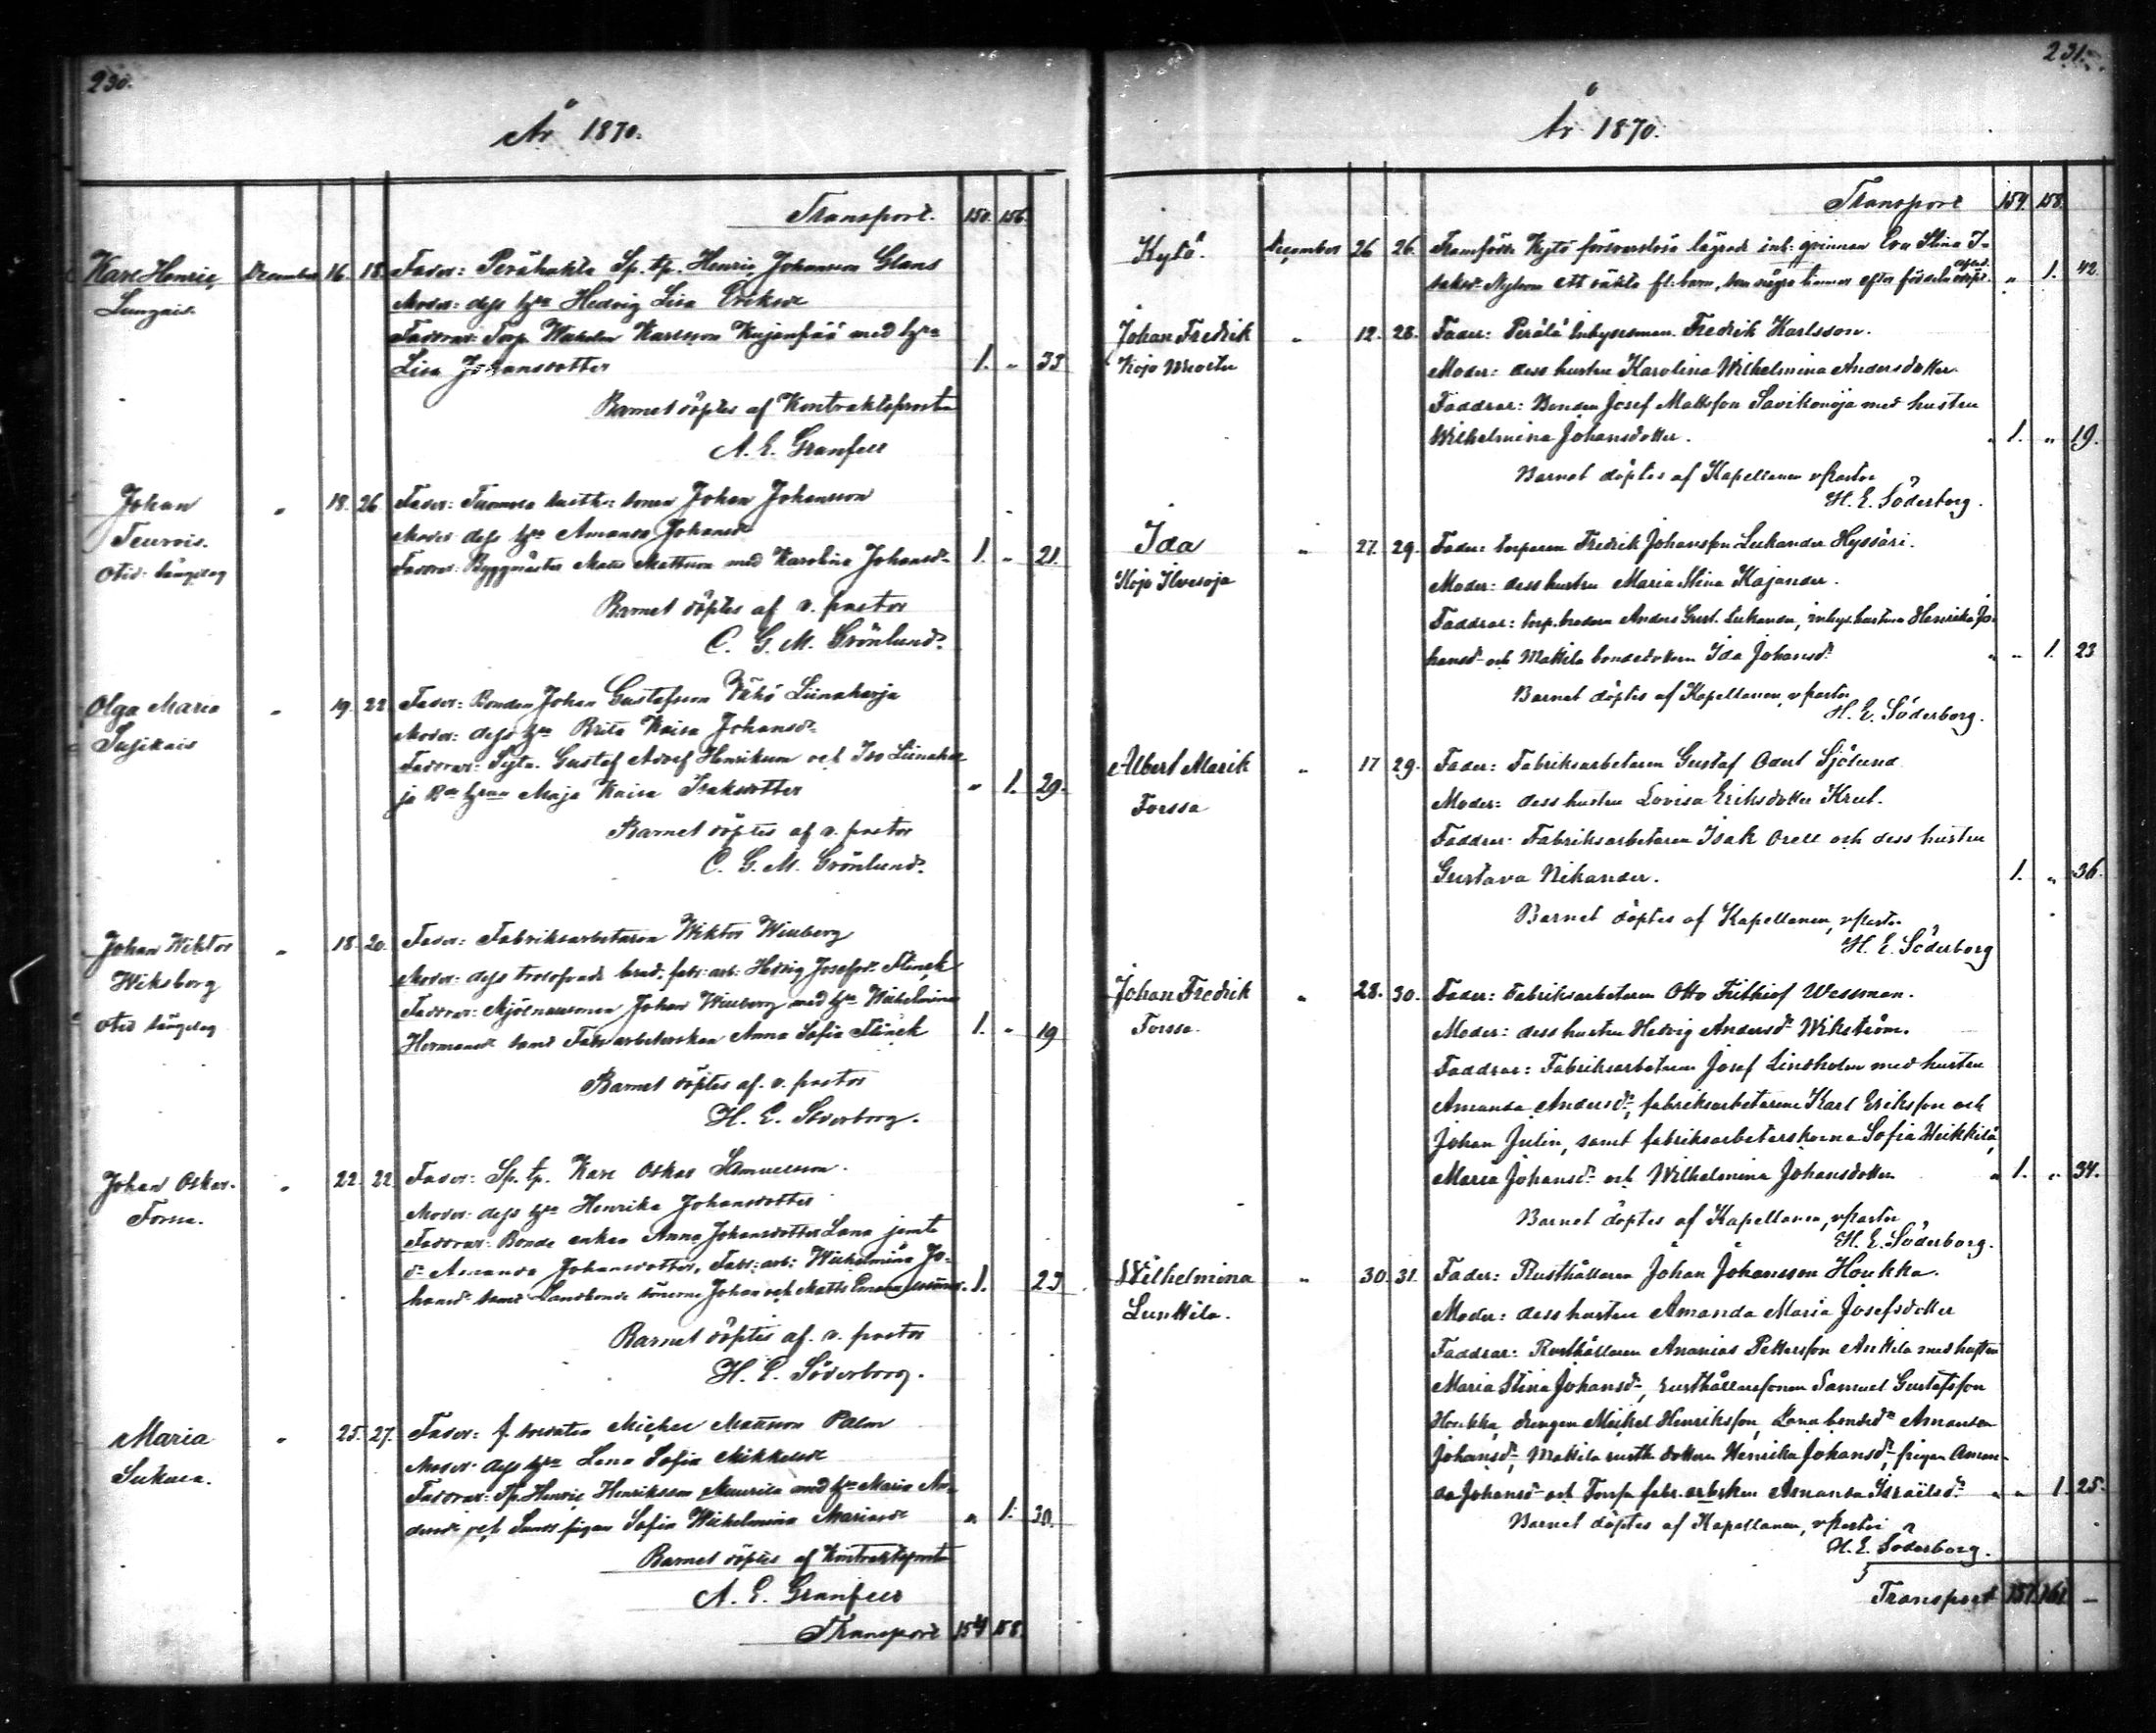 230.
År 1870.
Transport. 150. 156.
Karl Henric December 16. 18. Fader: Perähukla Sp. tp. Henric Johansson Glans
Lunzais. Moder: dess h:u Hedvig Lisa Eriksd:r
Faddrar: Torp. Wilhelm Karlsson Kujanpää med h:u
Lisa Johansdotter 1. " 33
Barnet döptes af Kontraktsprosten
A. E. Granfelt
Johan " 18. 26. Fader: Tammela rusth: sonen Johan Johansson
Teurois. Moder: dess h:u Amanda Johansd:r
Otid: sängelag Faddrar: Byggmästar Matts Mattsson med Karolina Johansd:r 1. " 21.
Barnet döptes af v. pastor
C. G. M. Grönlund.
Olga Maria " 19. 22 Fader: Bonden Johan Gustafsson Vähä Liinaharja
Susikais Moder: dess h:u Brita Kaisa Johansd:r
Faddrar: Sytn. Gustaf Adolf Henriksson och Iso Liinahar
ja B:de h:run Maja Kaisa Isaksdotter " 1. 29.
Barnet döptes af v. pastor
C. G. M. Grönlund.
Johan Wiktor " 18. 20. Fader: Fabriksarbetaren Wiktor Winberg
Wiksborg Moder: dess trolofvade brud, fabr: arb: Hedvig Josefsd:r Flinck
Otid sängelag Faddrar: Mjölnaresonen Johan Winberg med h:u Wilhelmina
Hermansd:r samt Fabr arbeterskan Anna Sofia Flinck 1. " 19
Barnet döptes af. v. pastor
H. E. Söderborg.
Johan Oskar. " 22. 22. Fader: Sp. tp. Karl Oskar Samuelsson.
Forssa. Moder: dess h:u Henrika Johansdotter
Faddrar: Bonde enkan Anna Johansdotter Lana jemte
d:r Amanda Johansdotter, Fabr: arb: Wilhelmina Jo-
hansd:r samt Landbonde sönerne Johan och Matts Emanuelssöner. 1. 23
Barnet döptes af. v. pastor
H. E. Söderborg.
Maria " 25. 27. Fader: f. soldaten Michel Mattsson Palm
Sukula. Moder: dess h:u Lena Sofia Mikkelsd:r
Faddrar: Tp. Henric Henriksson Muurila med h:u Maria An-
dersd:r och Sunds pigan Sofia Wilhelmina Mariasd:r " 1. 30.
Barnet döptes af Kontraktsprosten
A. E. Granfelt
Transport 154 158.
231.
År 1870.
Transport 154. 158.
Kytö. December 26 26. Framfödde Kytö försvarslösa lägrade inh: qvinnan Eva Stina I-
saksd:r Nylsom ett oäkta fl: barn, som några timmar efter födseln " 1. 42.
Johan Fredrik " 12. 28. Fader: Perälä Inhysesman Fredrik Karlsson.
Kojo Moder: dess hustru Karolina Wilhelmina Andersdotter
Faddrar: Bonden Josef Mattsson Savikonoja med hustru
Wilhelmina Johansdotter. " 1. " 19.
Barnet döptes af Kapellanen v pastor
H. E. Söderborg.
Ida " 27. 29. Fader: torparen Fredrik Johansson Lukander Hyssäri.
Kojo Ilvesoja Moder: dess hustru Maria Stina Kajander.
Faddrar: torp. brodern Anders Gust. Lukander, inhys. hustrun Henrika Jo-
hansd:r och Mattila bondedottern Ida Johansd:r " " 1. 23
Barnet döptes af Kapellanen, v pastor
H. E. Söderborg.
Albert Marik " 17 29. Fader: Fabriksarbetaren Gustaf Odert Sjölund
Forssa Moder: dess hustru Lovisa Eriksdotter Krul.
Faddrar: Fabriksarbetaren Isak Orell och dess hustru
Gustava Nikander. 1. " 36.
Barnet döptes af Kapellanen, v pastor
H. E. Söderborg
Johan Fredrik " 28. 30. Fader: Fabriksarbetaren Otto Frithiof Wessman.
Forssa. Moder: dess hustru Hedvig Andersd:r Wikström.
Faddrar: Fabriksarbetaren Josef Lindholm med hustru
Amanda Andersd:r, fabriksarbetarene Karl Eriksson och
Johan Julin, samt fabriksarbeterskorna Sofia Heikkilä,
Maria Johansd:r och Wilhelmina Johansdotter " 1. " 34.
Barnet döptes af Kapellanen, v pastor
H. E. Söderborg.
Wilhelmina " 30. 31. Fader: Rusthållaren Johan Johansson Houkka.
Lunttila. Moder: dess hustru Amanda Maria Josefsdotter
Faddrar: Rusthållaren Ananias Pettersson Anttila med hustru
Maria Stina Johansd:r, rusthållaresonen Samuel Gustafsson
Houkka, drängen Mickel Henriksson, Lana bondd:r Amanda
Johansd:r, Mattila rusth. dottern Henrika Johansd:r, pigan Aman-
da Johansd:r och Forssa fabr. arbskan Amanda Israelsd:r " " 1 25.
Barnet döptes af Kapellanen, v pastor
H. E. Söderborg.
Transport 157. 161. -